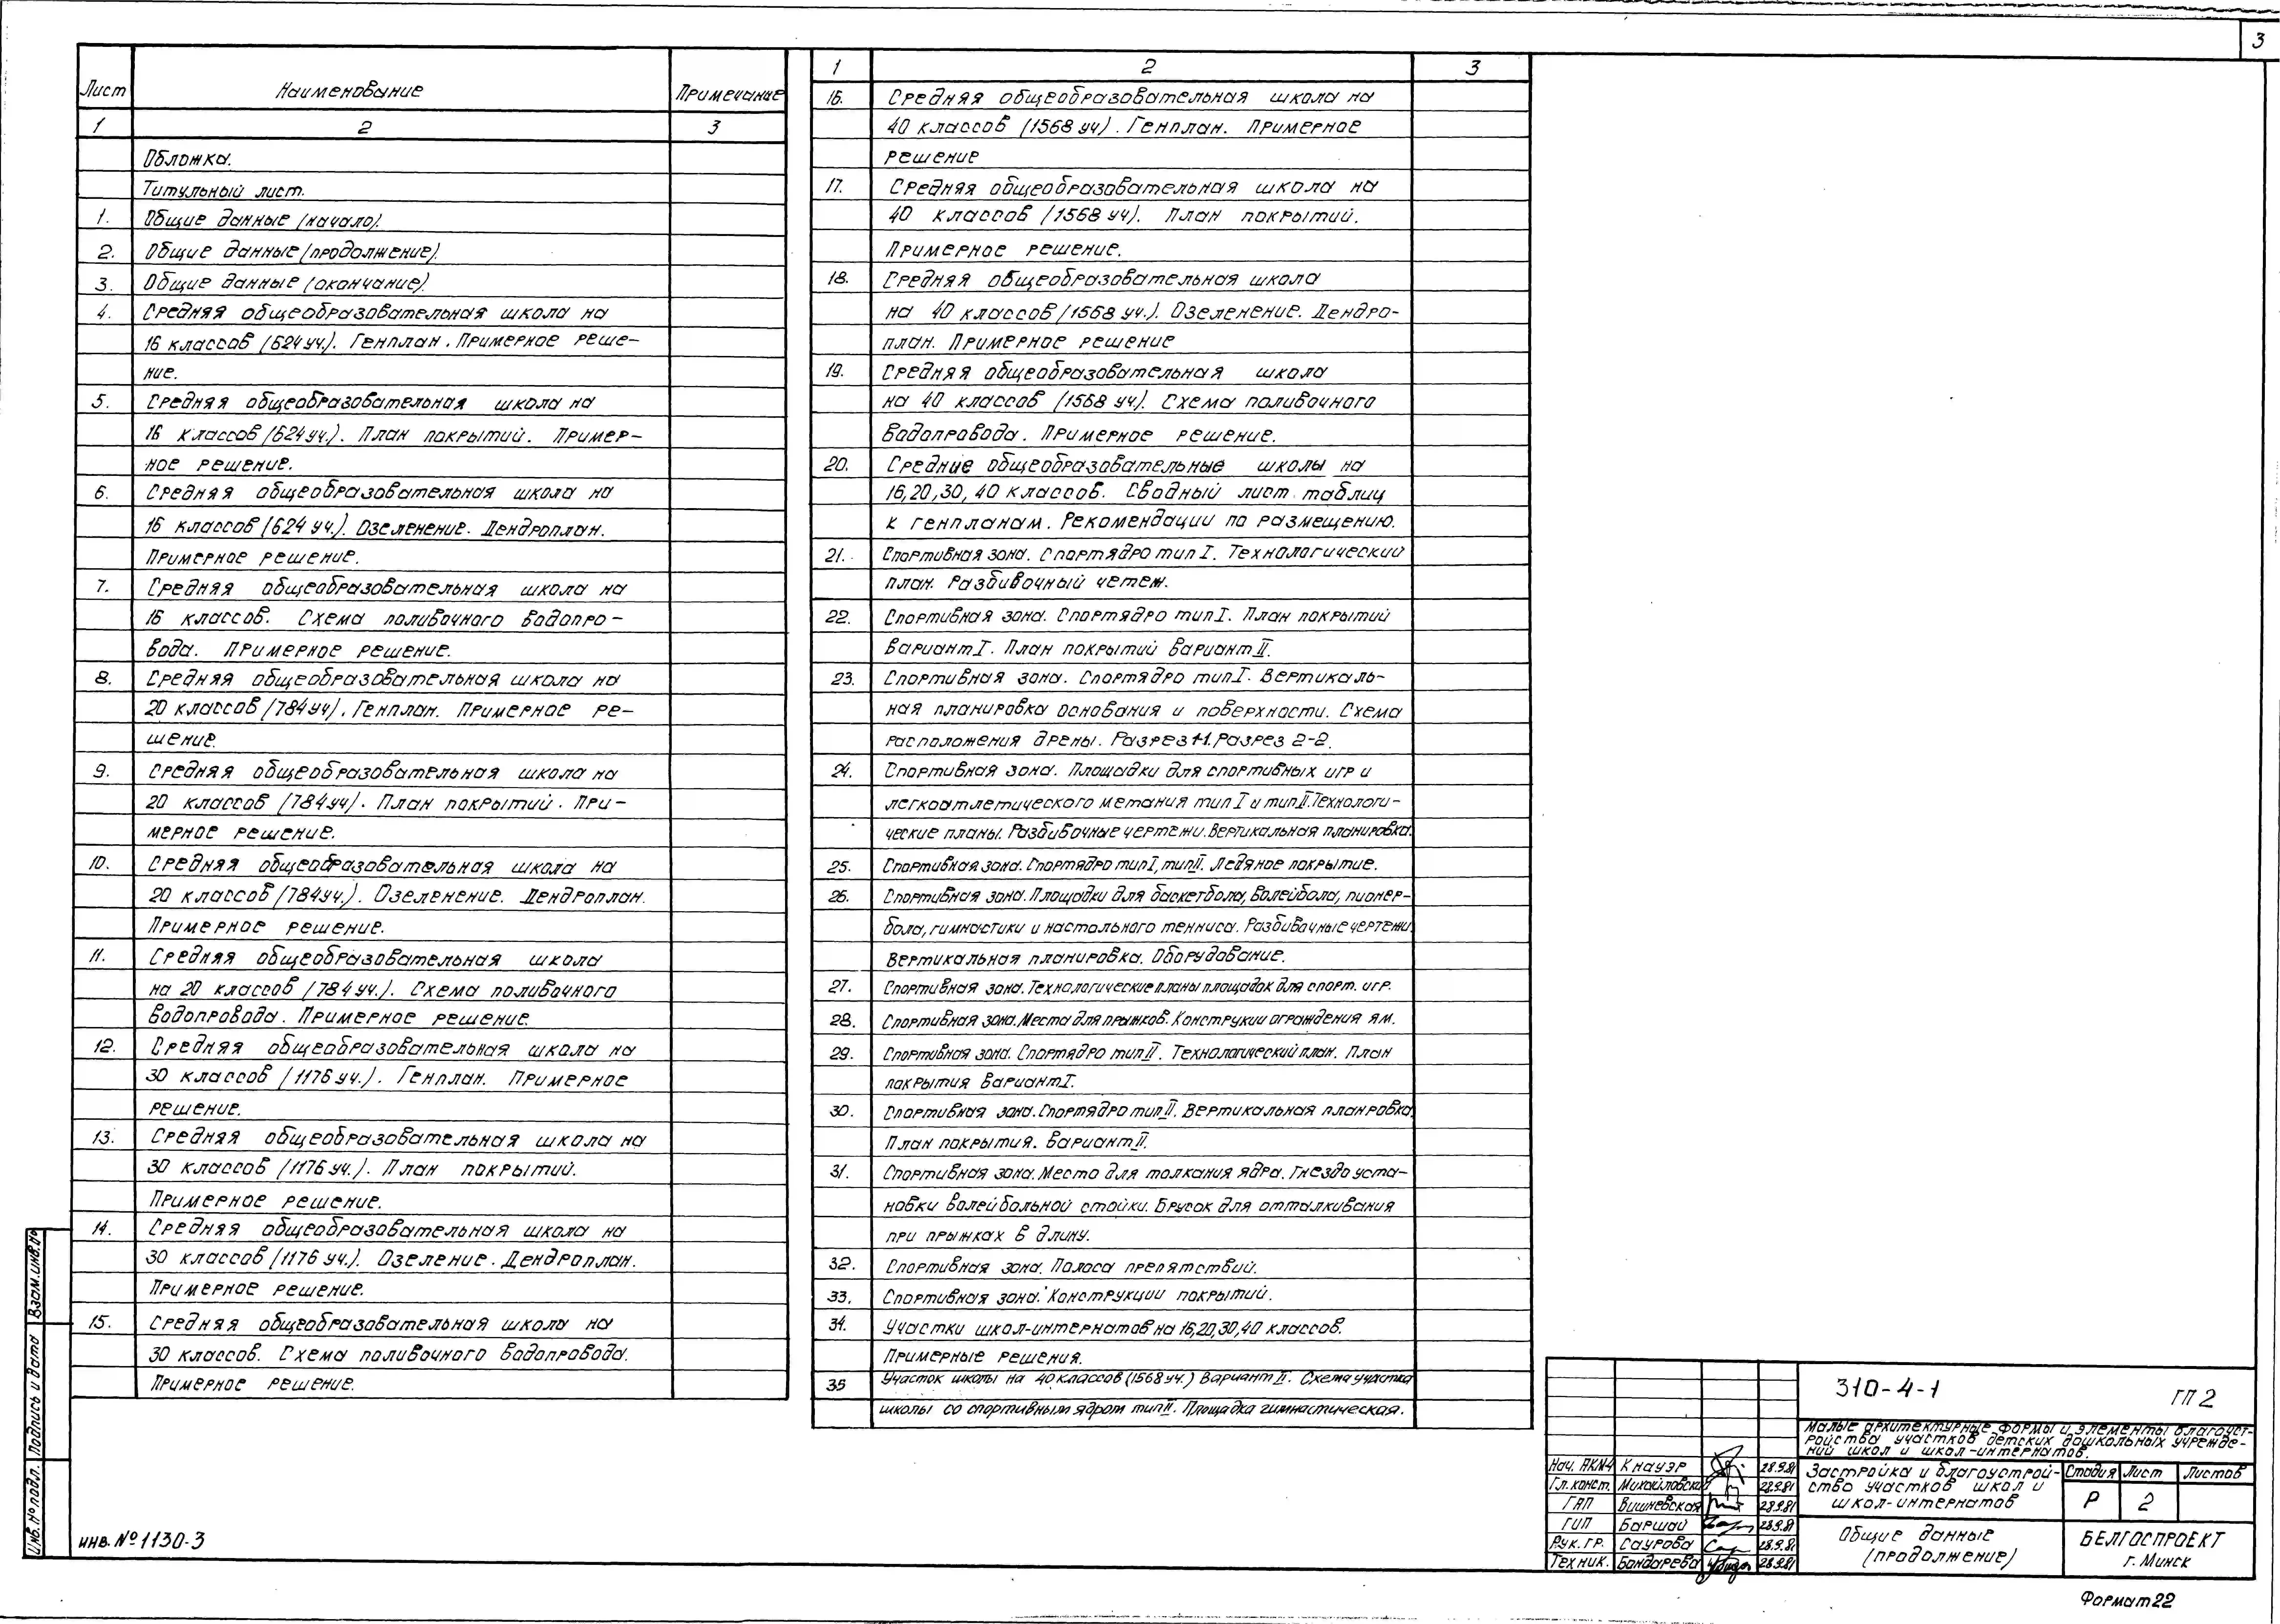 3
Лист Наименование Примечание
1 2 3
Обложка.
Титульный лист.
1. Общие данные (начало).
2. Общие данные (продолжение).
3. Общие данные (окончание).
4. Средняя общеобразовательная школа на
16 классов (624 уч.). Генплан. Примерное реше-
ние.
5. Средняя общеобразовательная школа на
16 классов (624 уч.). План покрытий. Пример-
ное решение.
6. Средняя общеобразовательная школа на
16 классов (624 уч.). Озеленение. Дендроплан.
Примерное решение.
7. Средняя общеобразовательная школа на
16 классов. Схема поливочного водопро-
вода. Примерное решение.
8. Средняя общеобразовательная школа на
20 классов (784 уч). Генплан. Примерное ре-
шение.
9. Средняя общеобразовательная школа на
20 классов (784 уч). План покрытий. При-
мерное решение.
10. Средняя общеобразовательная школа на
20 классов (784 уч.). Озеленение. Дендроплан.
Примерное решение.
11. Средняя общеобразовательная школа
на 20 классов (784 уч.). Схема поливочного
водопровода. Примерное решение.
12. Средняя общеобразовательная школа на
30 классов (1176 уч.). Генплан. Примерное
решение.
13. Средняя общеобразовательная школа на
30 классов (1176 уч.). План покрытий.
Примерное решение.
14. Средняя общеобразовательная школа на
30 классов (1176 уч.). Озеление. Дендроплан.
Примерное решение.
15. Средняя общеобразовательная школа на
30 классов. Схема поливочного водопровода.
Примерное решение.
1 2 3
16. Средняя общеобразовательная школа на
40 классов (1568 уч). Генплан. Примерное
решение
17. Средняя общеобразовательная школа на
40 классов (1568 уч). План покрытий.
Примерное решение.
18. Средняя общеобразовательная школа
на 40 классов (1568 уч.). Озеленение. Дендро-
план. Примерное решение
19. Средняя общеобразовательная школа
на 40 классов (1568 уч.). Схема поливочного
водопровода. Примерное решение.
20. Средние общеобразовательные школы на
16, 20, 30, 40 классов. Сводный лист таблиц
к генпланам. Рекомендации по размещению.
21. Спортивная зона. Спортядро тип I. Технологический
план. Разбивочный четеж.
22. Спортивная зона. Спортядро тип I. План покрытий
вариант I. План покрытий вариант II.
23. Спортивная зона. Спортядро тип I. Вертикаль-
ная планировка основания и поверхности. Схема
расположения дрены. Разрез 1-1. Разрез 2-2.
24. Спортивная зона. Площадки для спортивных игр и
легкоатлетического метания тип I и тип II. Технологи-
ческие планы. Разбивочные чертежи. Вертикальная планировка.
25. Спортивная зона. Спортядро тип I, тип II. Ледяное покрытие.
26. Спортивная зона. Площадки для баскетбола, волейбола, пионер-
бола, гимнастики и настольного тенниса. Разбивочные чертежи.
Вертикальная планировка. Оборудование.
27. Спортивная зона. Технологические планы площадок для спорт. игр.
28. Спортивная зона. Места для прыжков. Конструкии ограждения ям.
29. Спортивная зона. Спортядро тип II. Технологический план. План
покрытия вариант I.
30. Спортивная зона. Спортядро тип II. Вертикальная планровка.
План покрытия. Вариант II.
31. Спортивная зона. Место для толкания ядра. Гнездо уста-
новки волейбольной стойки. Брусок для отталкивания
при прыжках в длину.
32. Спортивная зона. Полоса препятствий.
33. Спортивная зона. Конструкции покрытий.
34. Участки школ-интернатов на 16, 20, 30, 40 классов.
Примерные решения.
35 Участок школы на 40 классов (1568 уч.) Вариант II. Схема участка
школы со спортивным ядром тип II. Площадка гимнастическая.
310-4-1 ГП 2
Малые архитектурные формы и элементы благоуст-
ройства участков детских дошкольных учрежде-
ний школ и школ-интернатов.
Нач. АКМ4 Кнауэр 28.9.81
Гл. конст. Михайловский 28.9.81
ГАП Вишневская 28.9.81
ГИП Баршай 28.9.81
Рук. гр. Саурова 28.9.81
Техник. Бондарева 28.9.81
Застройка и благоустрой-
ство участков школ и
школ-интернатов
Стадия Лист Листов
Р 2
Общие данные
(продолжение)
БЕЛГОСПРОЕКТ
г. Минск
Формат 22
Инв. № подл. Подпись и дата Взам. инв. №
инв. № 1130-3